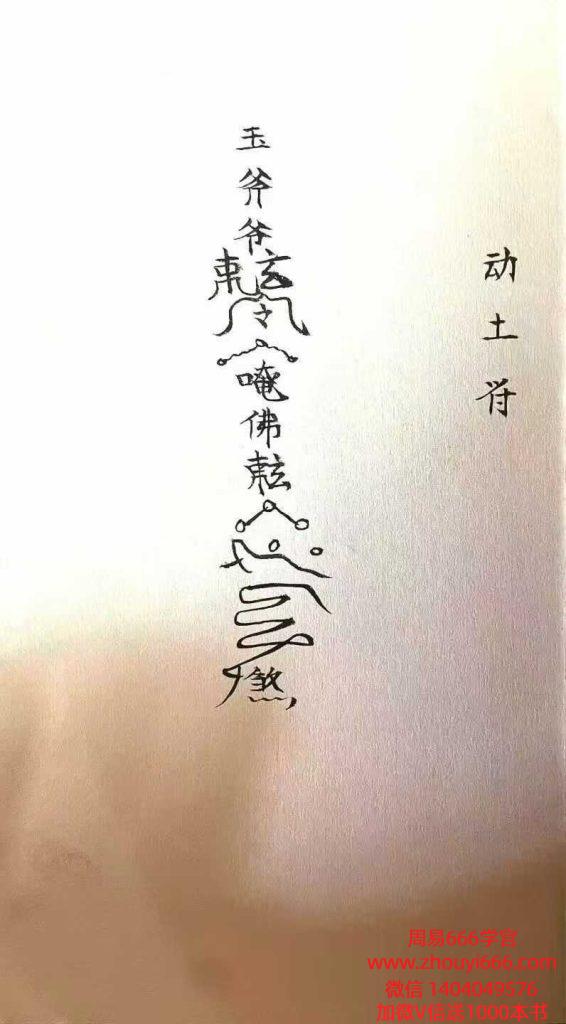 动土符
玉斧爷
東玄
令
唵佛
煞
周易666学宫
www.zhouyi666.com
微信 1404049576
加微V信送1000本书